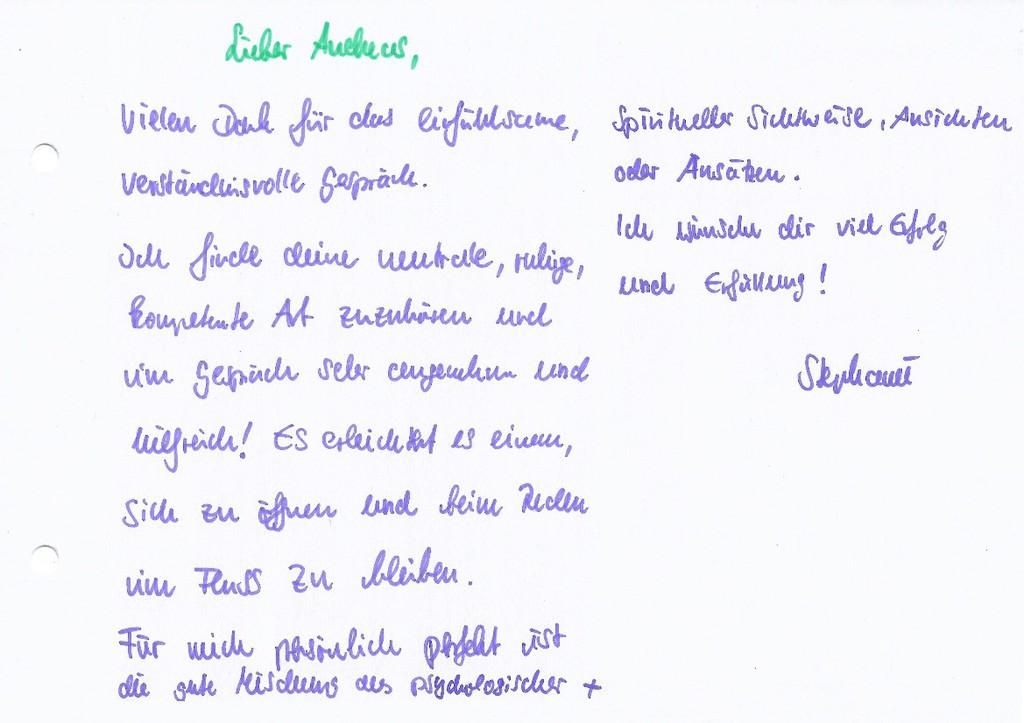 Lieber Andreas,
Vielen Dank für das einfühlsame,
verständnisvolle Gespräch.
Ich finde deine neutrale, ruhige,
kompetente Art zuzuhören und
im Gespräch sehr angenehm und
hilfreich! Es erleichtert es einem,
sich zu öffnen und beim Reden
im Fluss zu bleiben.
Für mich persönlich perfekt ist
die gute Mischung aus psychologischer +
spiritueller Sichtweise, Ansichten
oder Ansätzen.
Ich wünsche dir viel Erfolg
und Erfüllung!
Stephanie